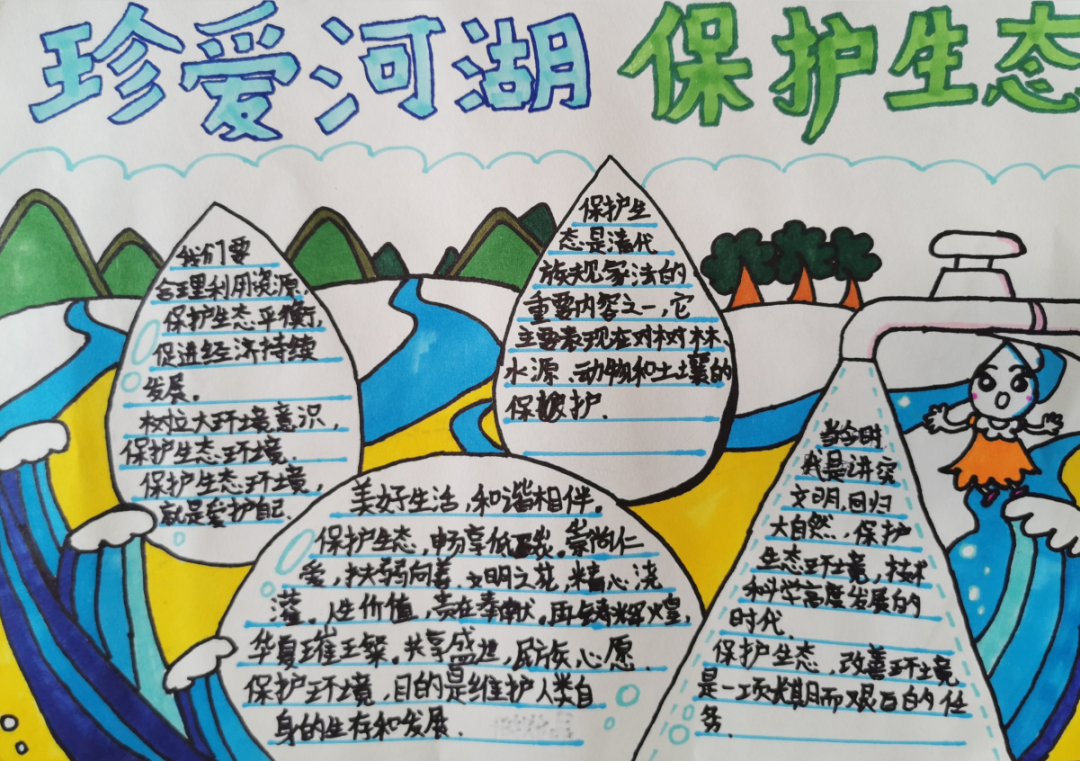 珍爱河湖 保护生态
我们要
合理利用资源,
保护生态平衡,
促进经济持续
发展。
树立大环境意识,
保护生态环境.
保护生态环境,
就是爱护自己.
保护生
态是清代
族规家法的
重要内容之一,它
主要表现在对树林、
水源、动物和土壤的
保护.
美好生活,和谐相伴。
保护生态,畅享低碳。崇尚仁
爱,扶弱向善.文明之花,精心浇
灌。人生价值,贵在奉献。再铸辉煌,
华夏璀璨.共享盛世,民族心愿.
保护环境,目的是维护人类自
身的生存和发展.
当今时
代是讲究
文明,回归
大自然,保护
生态环境,技术
和科学高度发展的
时代.
保护生态,改善环境
是一项长期而艰巨的任
务.